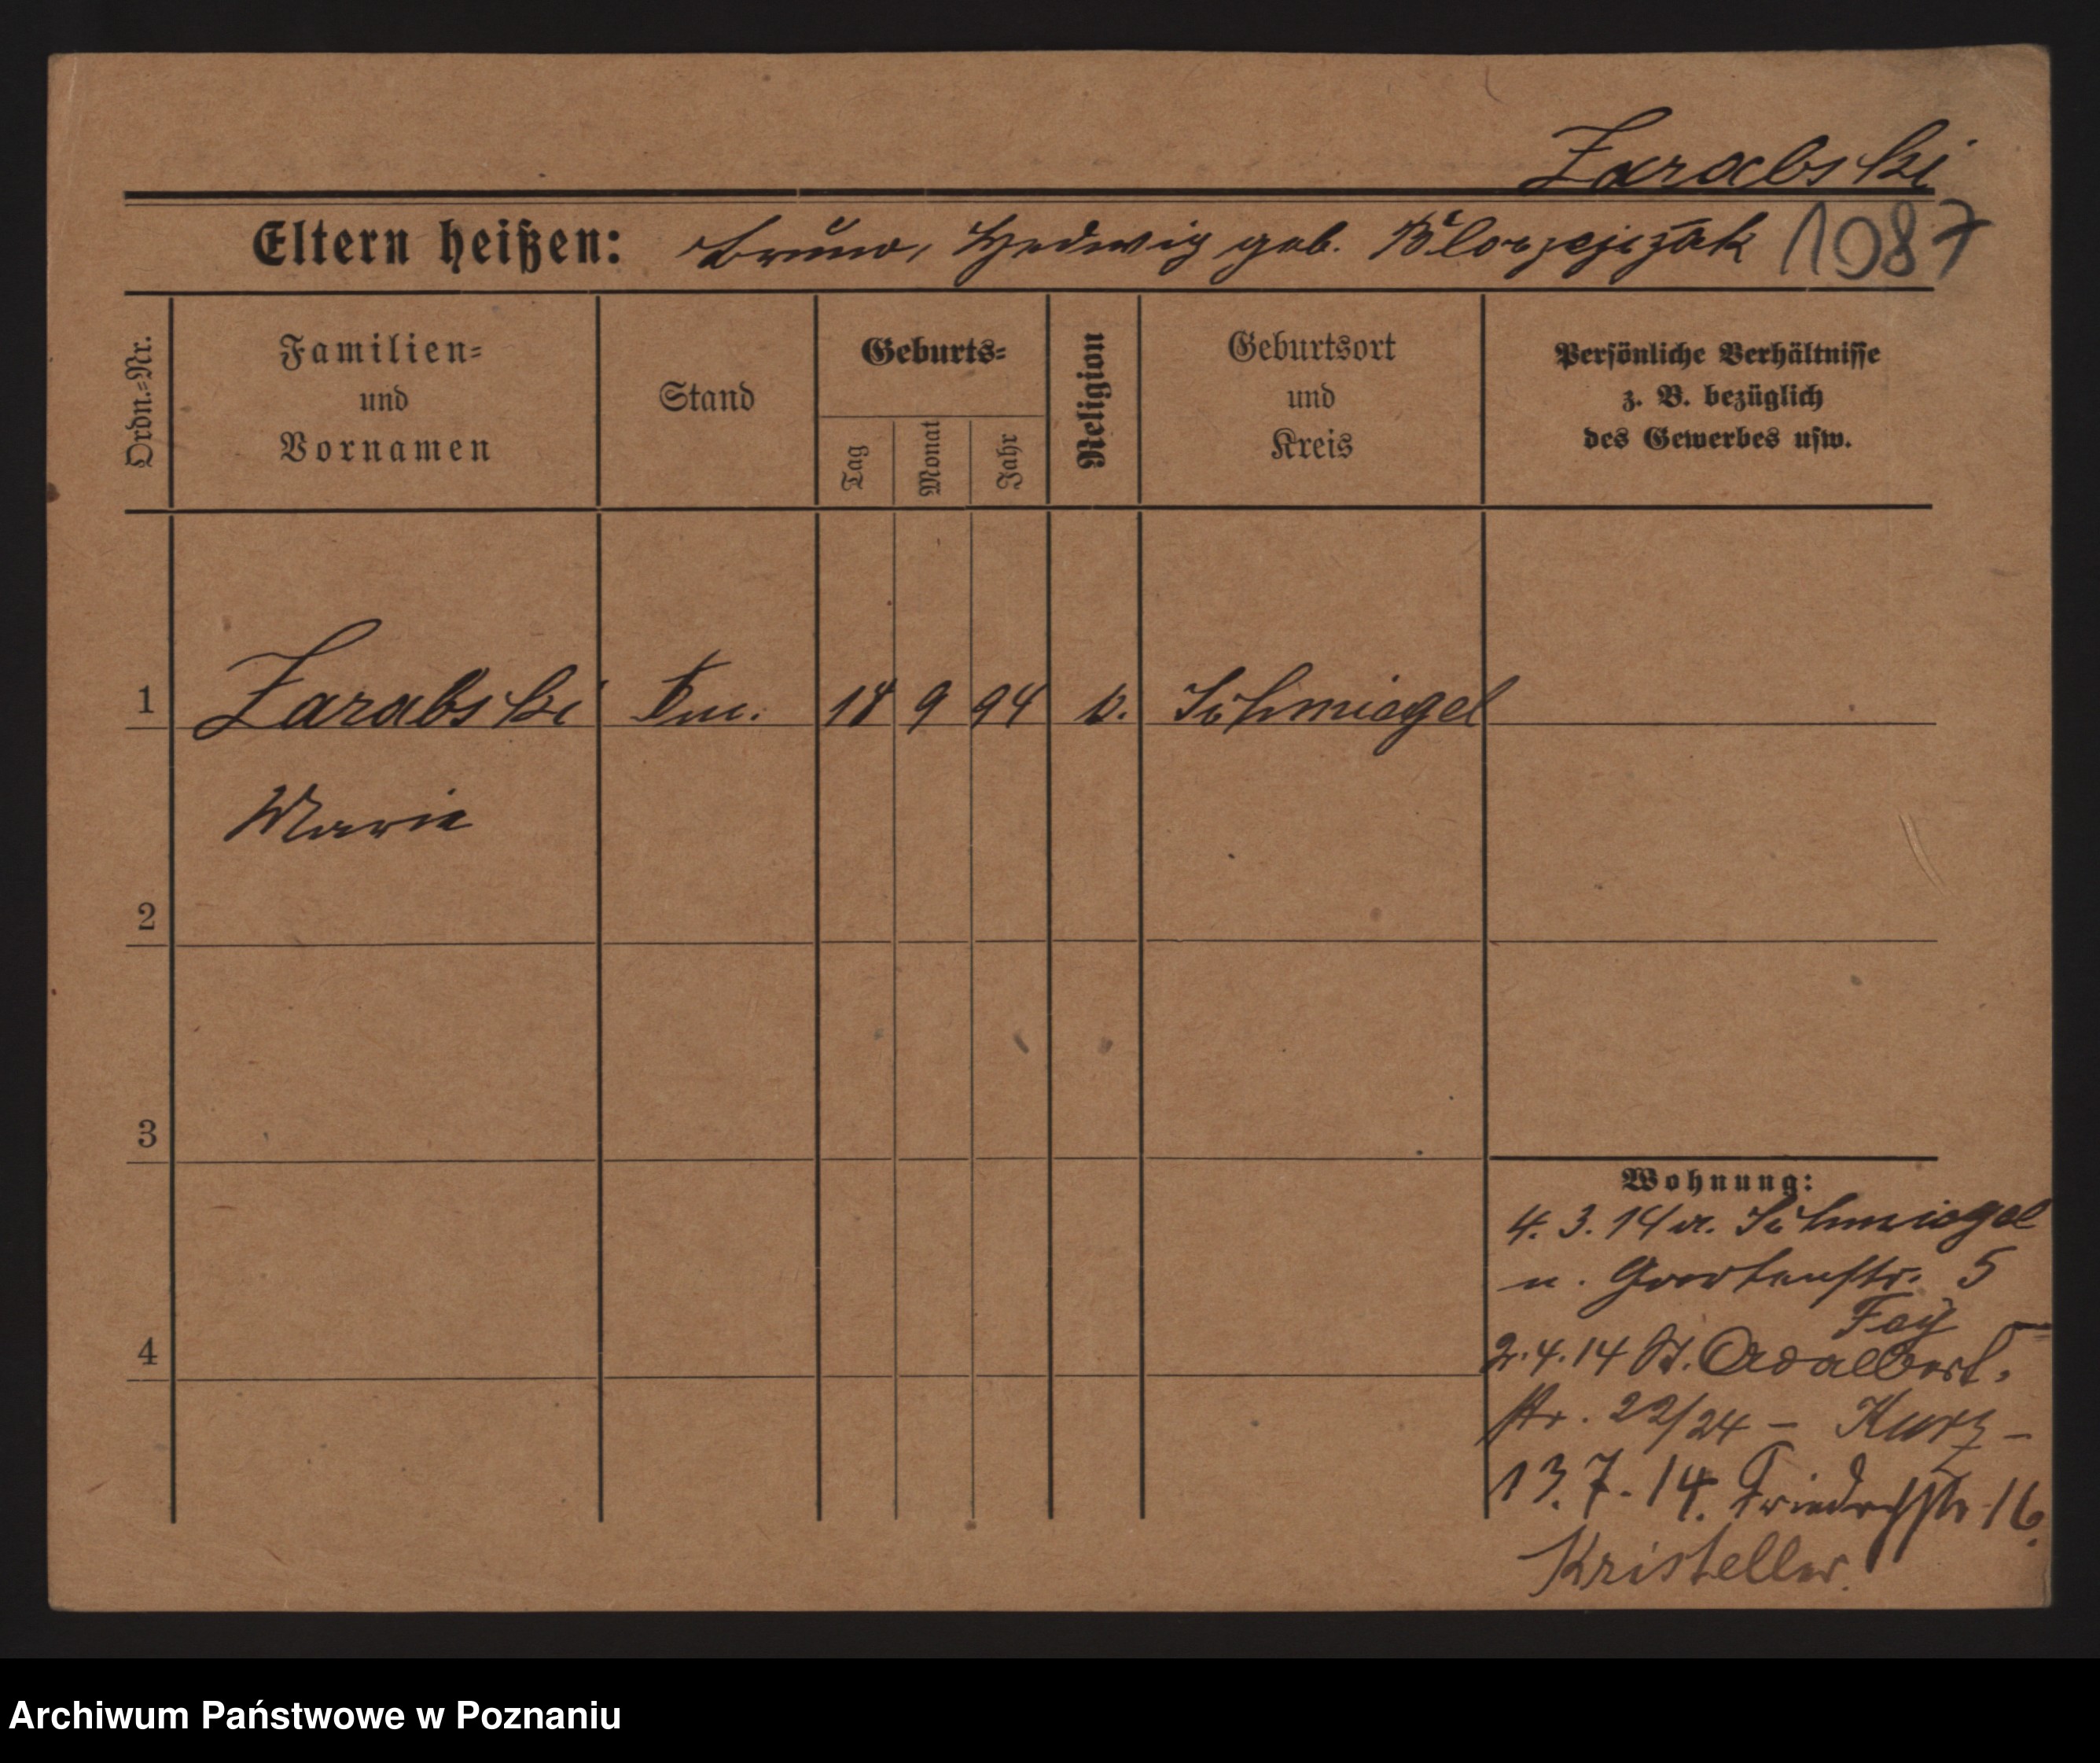 Zarabski
Eltern heißen: Bruno, Hedwig geb. 1087
Ordn.=Nr.
Familien=
und
Vornamen
Stand
Geburts=
Tag
Monat
Jahr
Religion
Geburtsort
und
Kreis
Persönliche Verhältnisse
z. B. bezüglich
des Gewerbes usw.
1 Zarabski 18 9 94 k. Schmiegel
Marie
2
3
4
Wohnung:
4. 3. 14 a. Schmiegel
n. Gartenstr. 5
Fey
2. 4. 14 St. Adalbert-
str. 22/24 – Kurz –
13. 7. 14. Friedrichstr 16.
Kristeller.
Archiwum Państwowe w Poznaniu